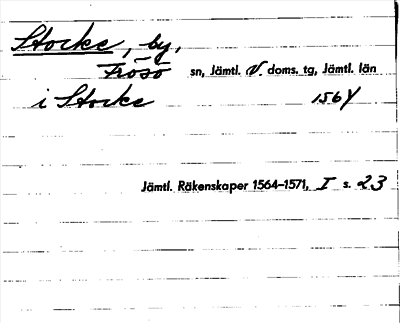 Stocke, by,
Frösö sn, Jämtl. V. doms. tg, Jämtl. län
i Stocke 1564
Jämtl. Räkenskaper 1564–1571, I s. 23